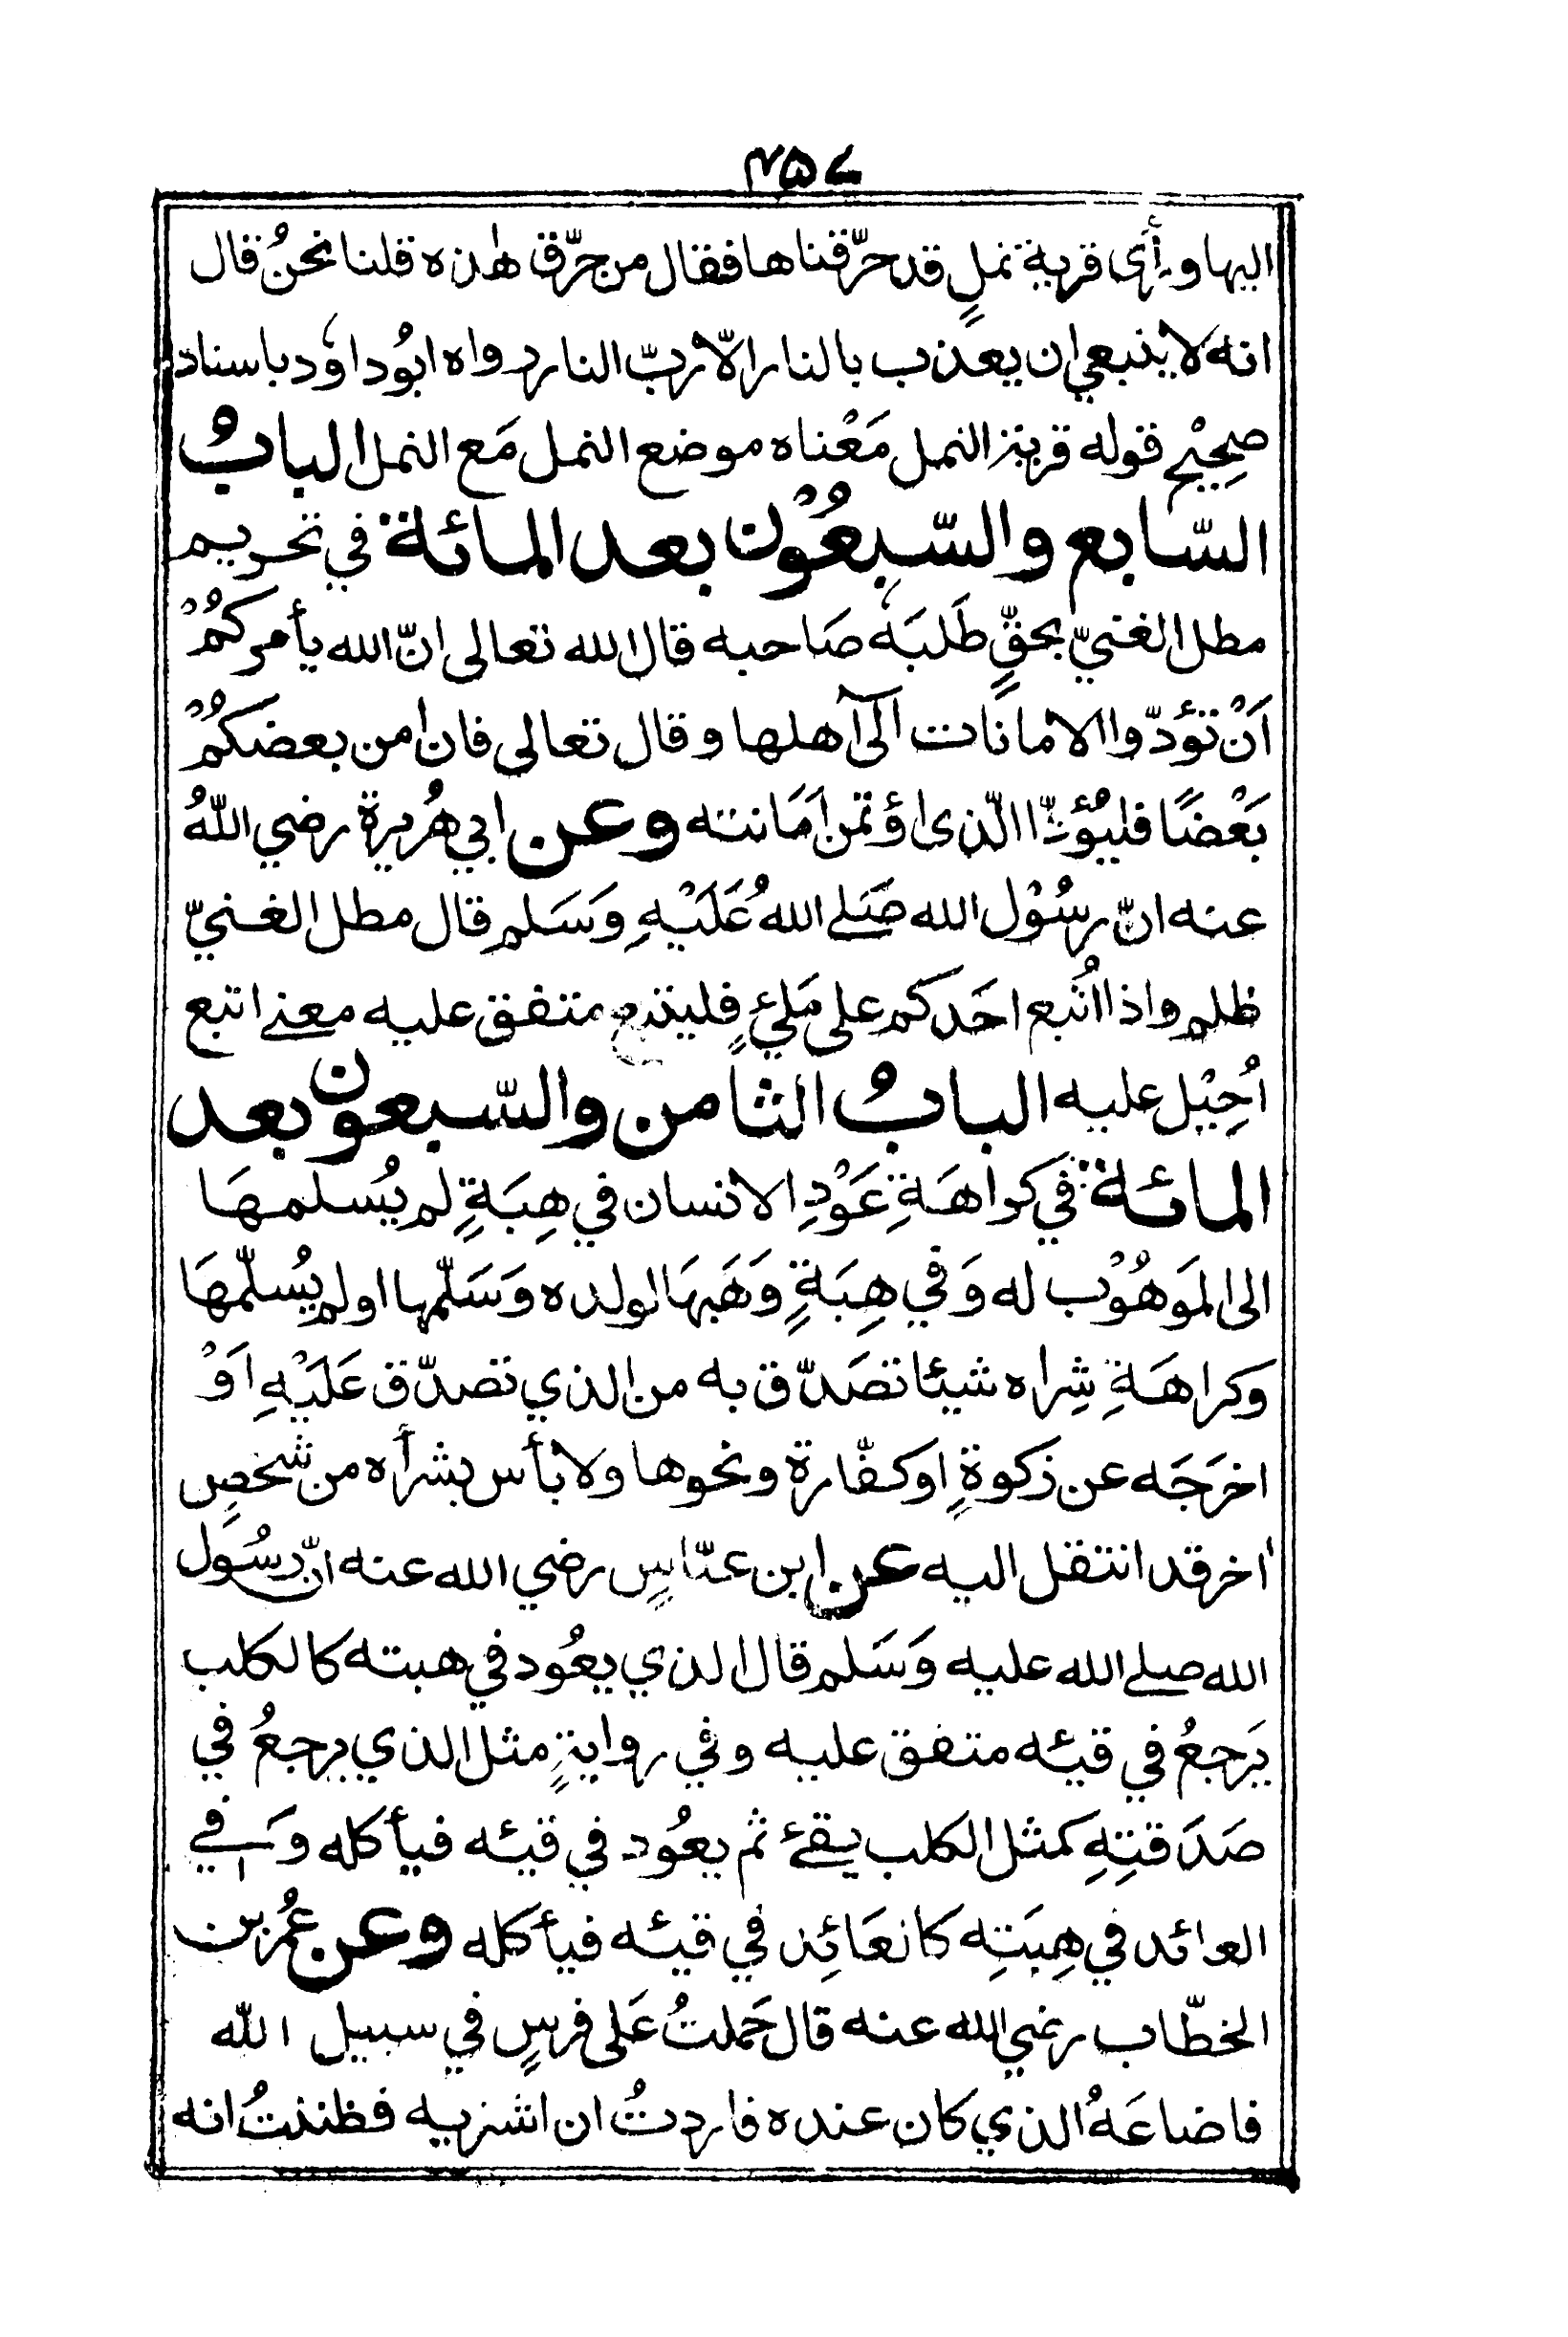 ۴۵۷
اليها ورأى قرية نملٍ قد حرّقناها فقال من حرّق هذه قلنا نحنُ قال
انه لا ينبعي ان يعذب بالنار الّا ربّ النار رواه ابُو داوٗد باسناد
صحِيْح قوله قرية النمل مَعْناه موضع النمل مَع النمل البابُ
السّابع والسّبعُوْن بعد المائة في تحريم
مطل الغنيّ بحقٍّ طَلَبَهٗ صَاحبه قال الله تعالى انّ الله يأمركُمْ
اَنْ تؤدّوا الامانَات اِلٰى اَهلها وقال تعالى فان امن بعضكُمْ
بَعْضًا فليُؤدّ الّذى اؤتمن اَمَانته وعن ابي هُريرة رضي اللهُ
عنه انّ رسُوْل الله صَلے اللهُ عَلَيْهِ وَسَلم قال مطل الغنيّ
ظلم واذا اُتبع احَدكم على مَلِئٍ فليتبع متفق عليه معنے اتبع
اُحِيْل عليه البابُ الثامن والسّبعون بعد
المائة في كراهَةِ عَوْدِ الانسان في هِبَةٍ لم يُسلمهَا
الى المَوهُوْب له وَفي هِبَةٍ وَهَبهَا لولده وَسَلّمها او لم يُسلّمهَا
وكراهَةِ شِراه شيئا تصَدّق به من الذي تصدّق عَلَيْهِ اَوْ
اخرَجَه عن زكوةٍ او كفّارة ونحوها ولا بأس بشرأه من شخصٍ
اٰخر قد انتقل اليه عن ابن عبّاسٍ رضي الله عنه انّ رسُوَل
الله صلے الله عليه وَسَلم قال الذي يعُود في هبته كالكلب
يَرجعُ في قيئه متفق عليه وفي روايةٍ مثل الذي يرجعُ في
صَدَقتِهِ كمثل الكلب يقئ ثم يعُود في قيئه فيأكله وَ في
العائد في هِبَتِه كالعَائِد في قيئه فيأكله وعن عُمر بن
الخطّاب رضي الله عنه قال حَملتُ عَلى فرسٍ في سبيل الله
فاضاعَهُ الذي كان عنده فاردتُ ان اشتريه فظننتُ انه